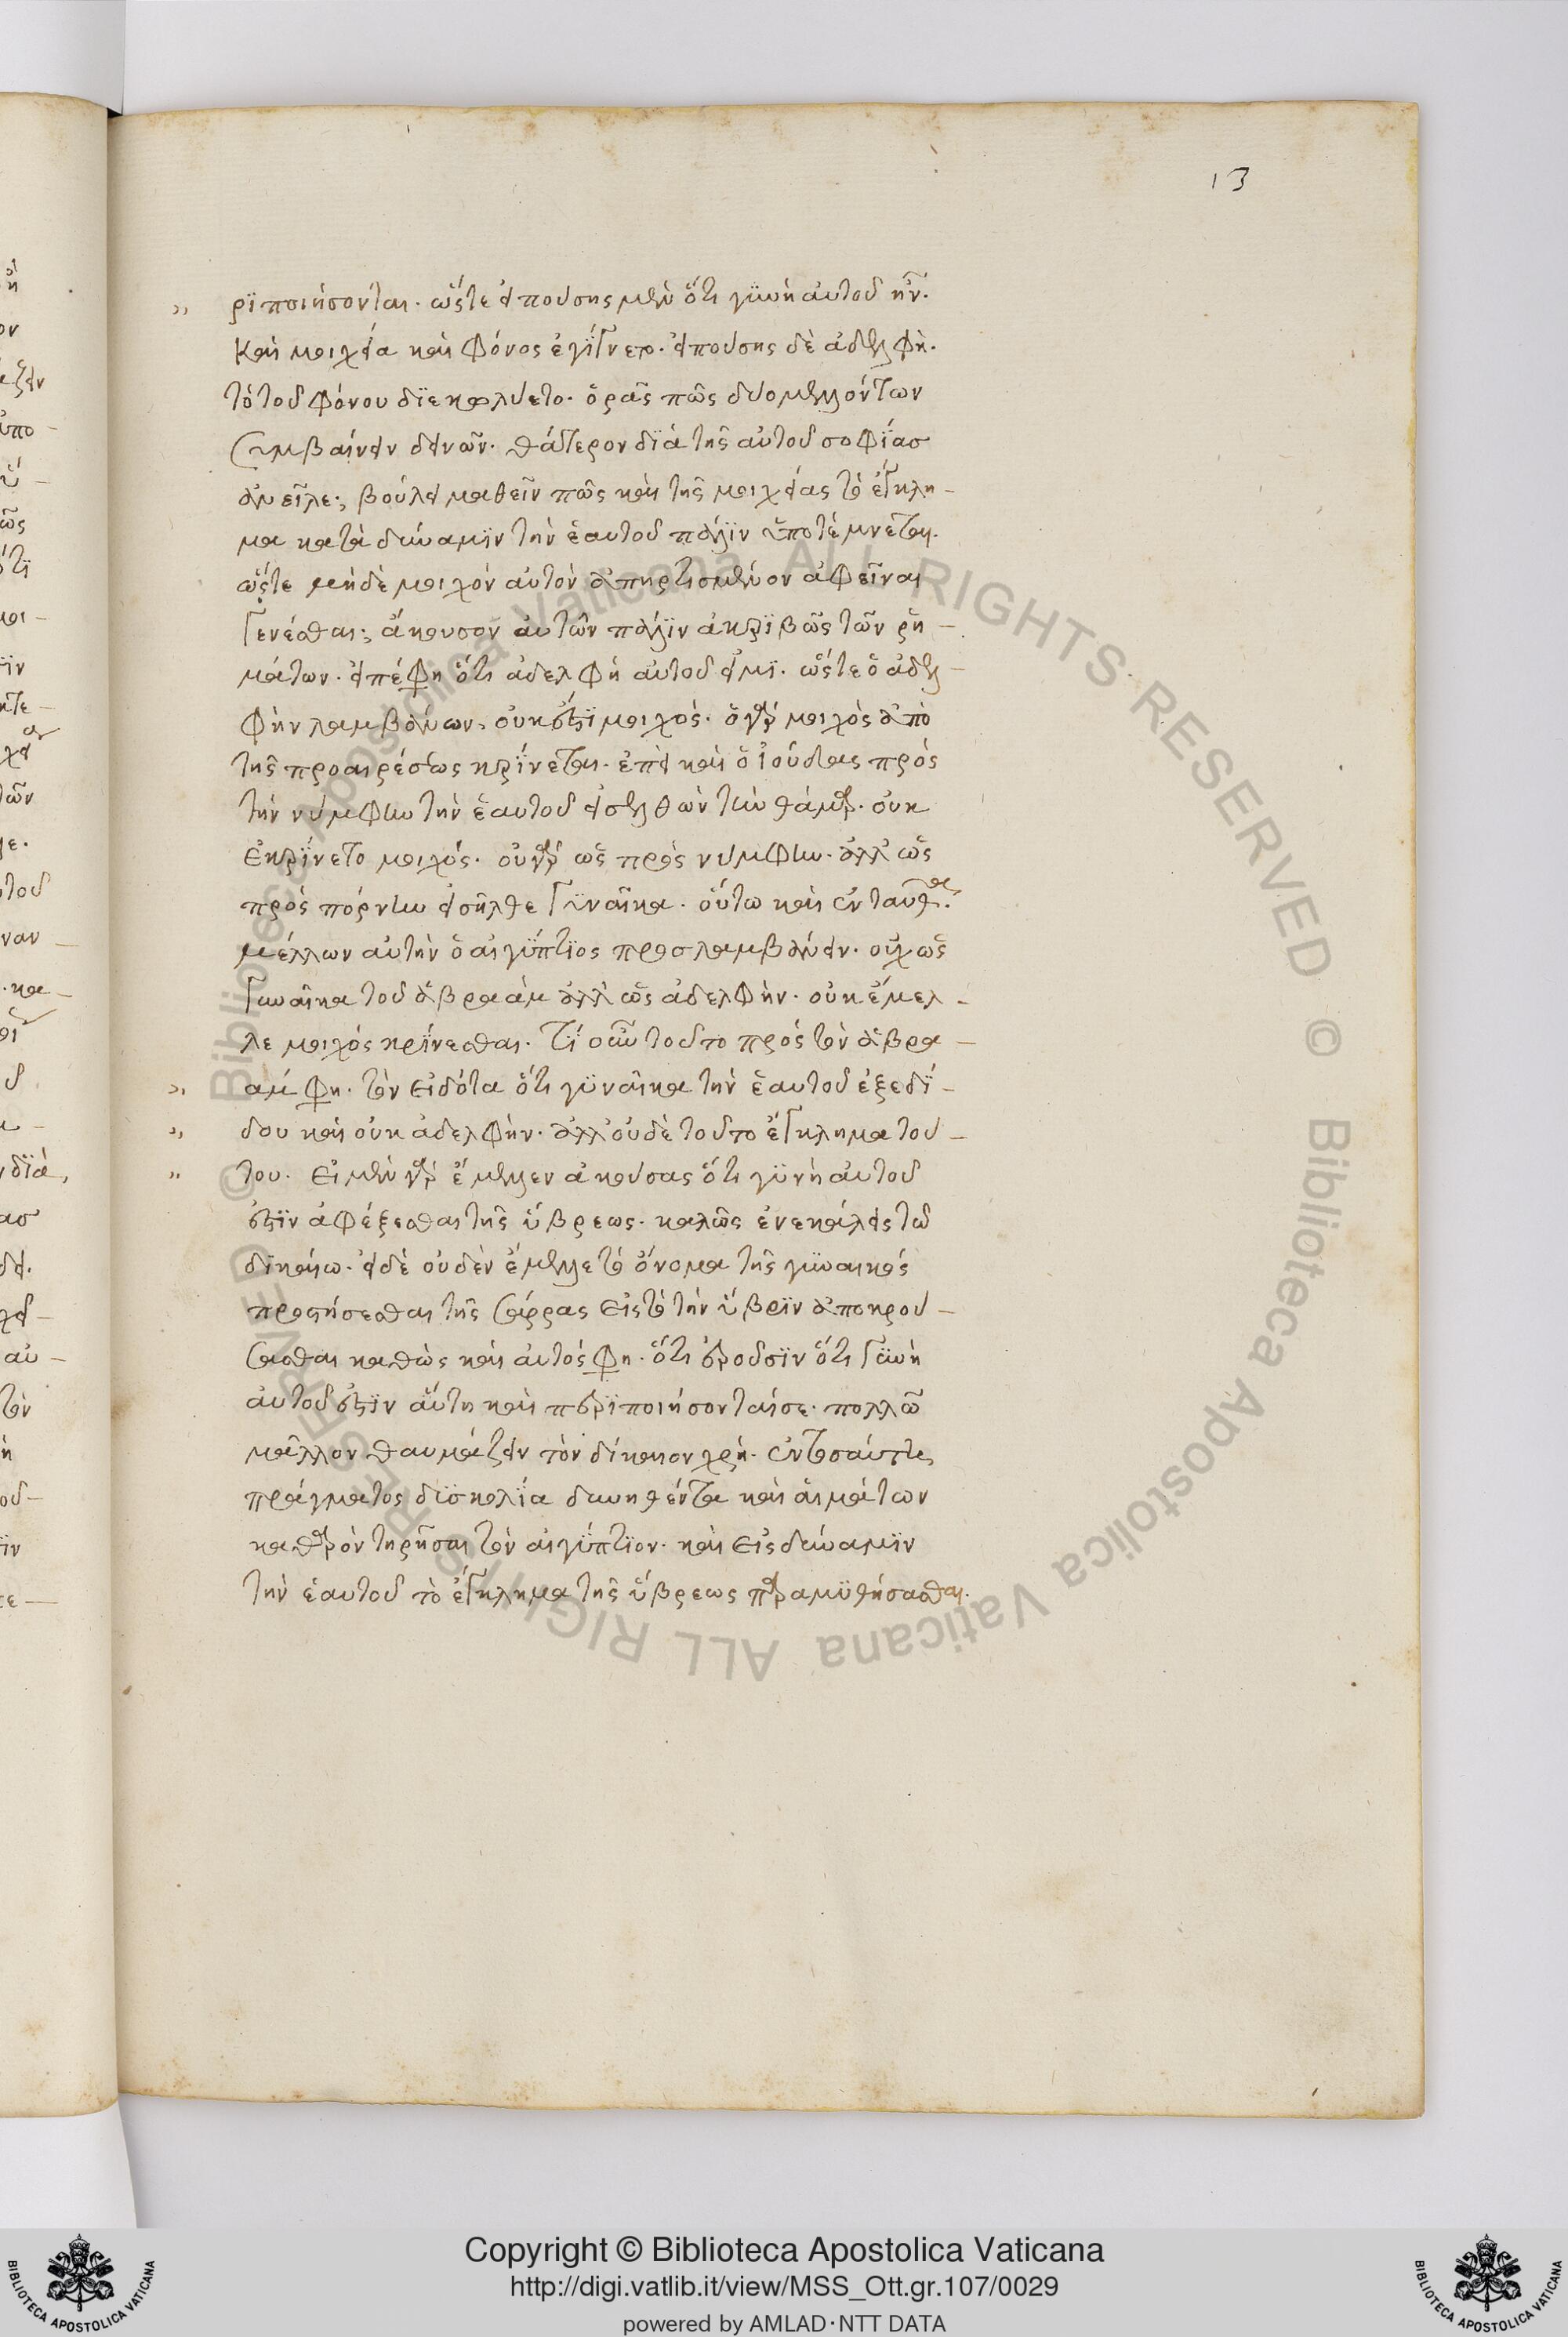 13
ριποιήσονται. ὥστε εἰπούσης μὲν ὅτι γυνὴ αὐτοῦ ἦν.
καὶ μοιχεία καὶ φόνος ἐγίγνετο. εἰπούσης δὲ ἀδελφὴ.
τὸ τοῦ φόνου διεκωλύετο. ὁρᾶς πῶς δύο μελλόντων
συμβαίνειν δεινῶν. θάτερον διὰ τῆς αὐτοῦ σοφίας
ἀνεῖλε; βούλει μαθεῖν πῶς καὶ τῆς μοιχείας τὸ ἔγκλη-
μα κατὰ δύναμιν τὴν ἑαυτοῦ πάλιν ὑποτέμνεται.
ὥστε μηδὲ μοιχὸν αὐτὸν ἀπηρτισμένον ἀφεῖναι
γενέσθαι; ἄκουσον αὐτῶν πάλιν ἀκριβῶς τῶν ῥη-
μάτων. εἰπέ φη ὅτι ἀδελφὴ αὐτοῦ εἰμι. ὥστε ὁ ἀδελ-
φὴν λαμβάνων, οὐκ ἔστι μοιχός. ὁ γὰρ μοιχὸς ἀπὸ
τῆς προαιρέσεως κρίνεται. ἐπεὶ καὶ ὁ ἰούδας πρὸς
τὴν νύμφην τὴν ἑαυτοῦ εἰσελθὼν τὴν θάμαρ. οὐκ
ἐκρίνετο μοιχός. οὐ γὰρ ὡς πρὸς νύμφην. ἀλλ' ὡς
πρὸς πόρνην εἰσῆλθε γυναῖκα. οὕτω καὶ ἐνταῦθα.
μέλλων αὐτὴν ὁ αἰγύπτιος προσλαμβάνειν. οὐχ ὡς
γυναῖκα τοῦ ἀβραὰμ ἀλλ' ὡς ἀδελφὴν. οὐκ ἔμελ-
λε μοιχὸς κρίνεσθαι. τί οὖν τοῦτο πρὸς τὸν ἀβρα-
ὰμ φη. τὸν εἰδότα ὅτι γυναῖκα τὴν ἑαυτοῦ ἐξεδί-
δου καὶ οὐκ ἀδελφὴν. ἀλλ' οὐδὲ τοῦτο ἔγκλημα τού-
του. εἰ μὲν γὰρ ἔμελλεν ἀκούσας ὅτι γυνὴ αὐτοῦ
ἐστιν ἀφέξεσθαι τῆς ὕβρεως. καλῶς ἐνεκάλεις τῶ
δικαίω. εἰ δὲ οὐδὲν ἔμελλε τὸ ὄνομα τῆς γυναικὸς
προστήσεσθαι τῆς σάρρας εἰς τὸ τὴν ὕβριν ἀποκρού-
σασθαι καθὼς καὶ αὐτός φη. ὅτι ἐροῦσιν ὅτι γυνὴ
αὐτοῦ ἐστιν αὕτη καὶ περιποιήσονταί σε. πολλῶ
μᾶλλον θαυμάζειν τὸν δίκαιον χρὴ. ἐν τοσαύτη
πράγματος δυσκολία δυνηθέντα καὶ αἱμάτων
καθαρὸν τηρῆσαι τὸν αἰγύπτιον. καὶ εἰς δύναμιν
τὴν ἑαυτοῦ τὸ ἔγκλημα τῆς ὕβρεως παραμυθήσασθαι.
Copyright © Biblioteca Apostolica Vaticana
http://digi.vatlib.it/view/MSS_Ott.gr.107/0029
powered by AMLAD·NTT DATA